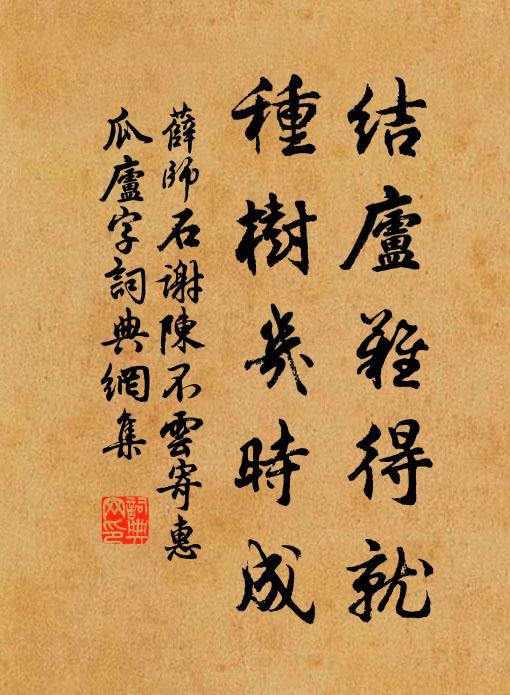 结廬難得就
種樹幾時成
薛師石謝陳不雲寄惠
瓜廬字詞典網集
詞典網印